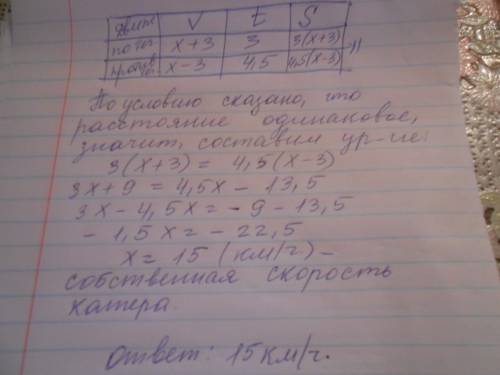 Движ. V t S
по теч. x+3 3 3(x+3)
против x-3 4,5 4,5(x-3)
По условию сказано, что
расстояние одинаковое,
значит, составим ур-ие:
3(x+3) = 4,5(x-3)
3x+9 = 4,5x - 13,5
3x - 4,5x = -9 - 13,5
- 1,5x = - 22,5
x = 15 (км/г) -
собственная скорость
катера.
Ответ: 15 км/г.